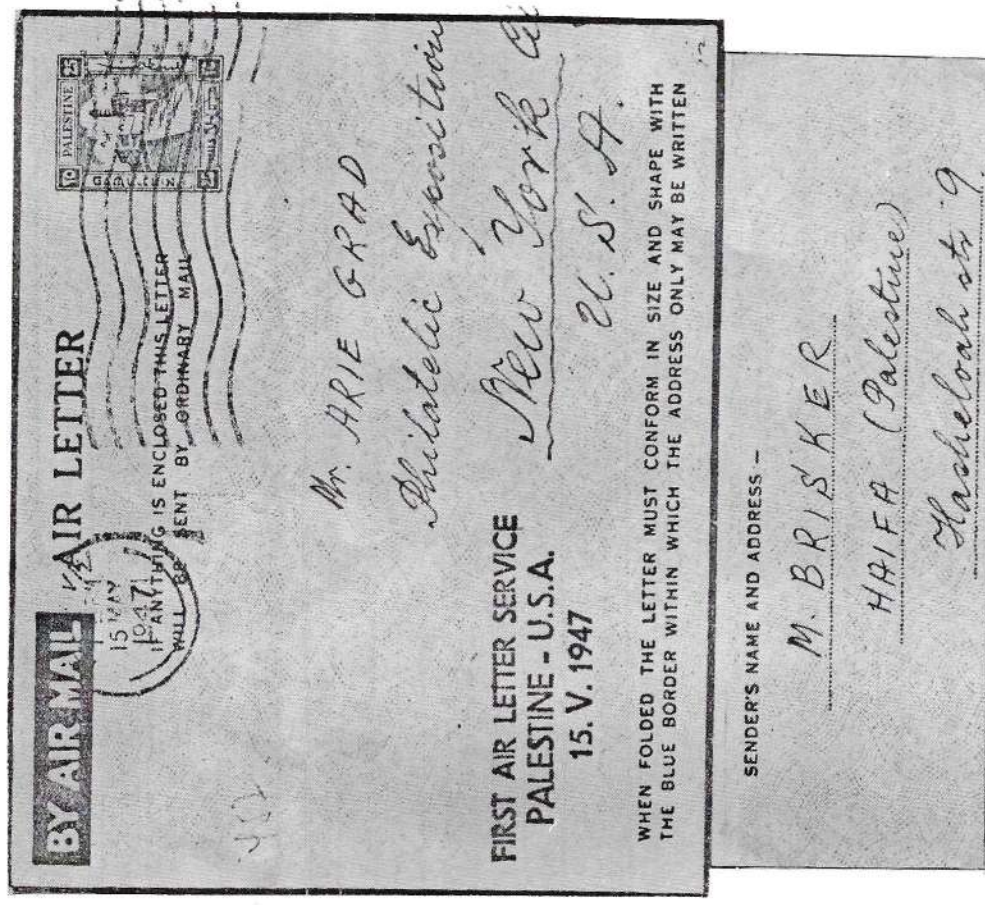 BY AIR MAIL
AIR LETTER
IF ANYTHING IS ENCLOSED THIS LETTER
WILL BE SENT BY ORDINARY MAIL
15 MAY
1947
PALESTINE
25
25
Mr. ARIE GRAD
Philatelic Exposition
New York
U.S.A.
FIRST AIR LETTER SERVICE
PALESTINE - U.S.A.
15. V. 1947
WHEN FOLDED THE LETTER MUST CONFORM IN SIZE AND SHAPE WITH
THE BLUE BORDER WITHIN WHICH THE ADDRESS ONLY MAY BE WRITTEN
SENDER'S NAME AND ADDRESS –
M. BRISKER
HAIFA (Palestine)
Hasheloah str 9